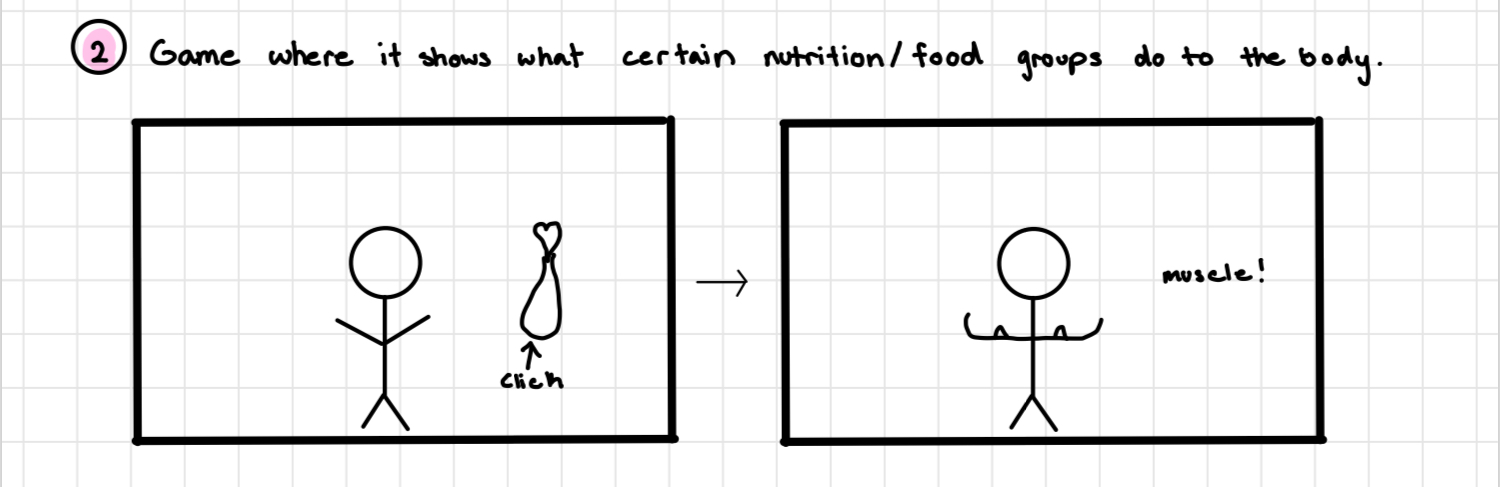 2 Game where it shows what certain nutrition/food groups do to the body.
click
muscle!